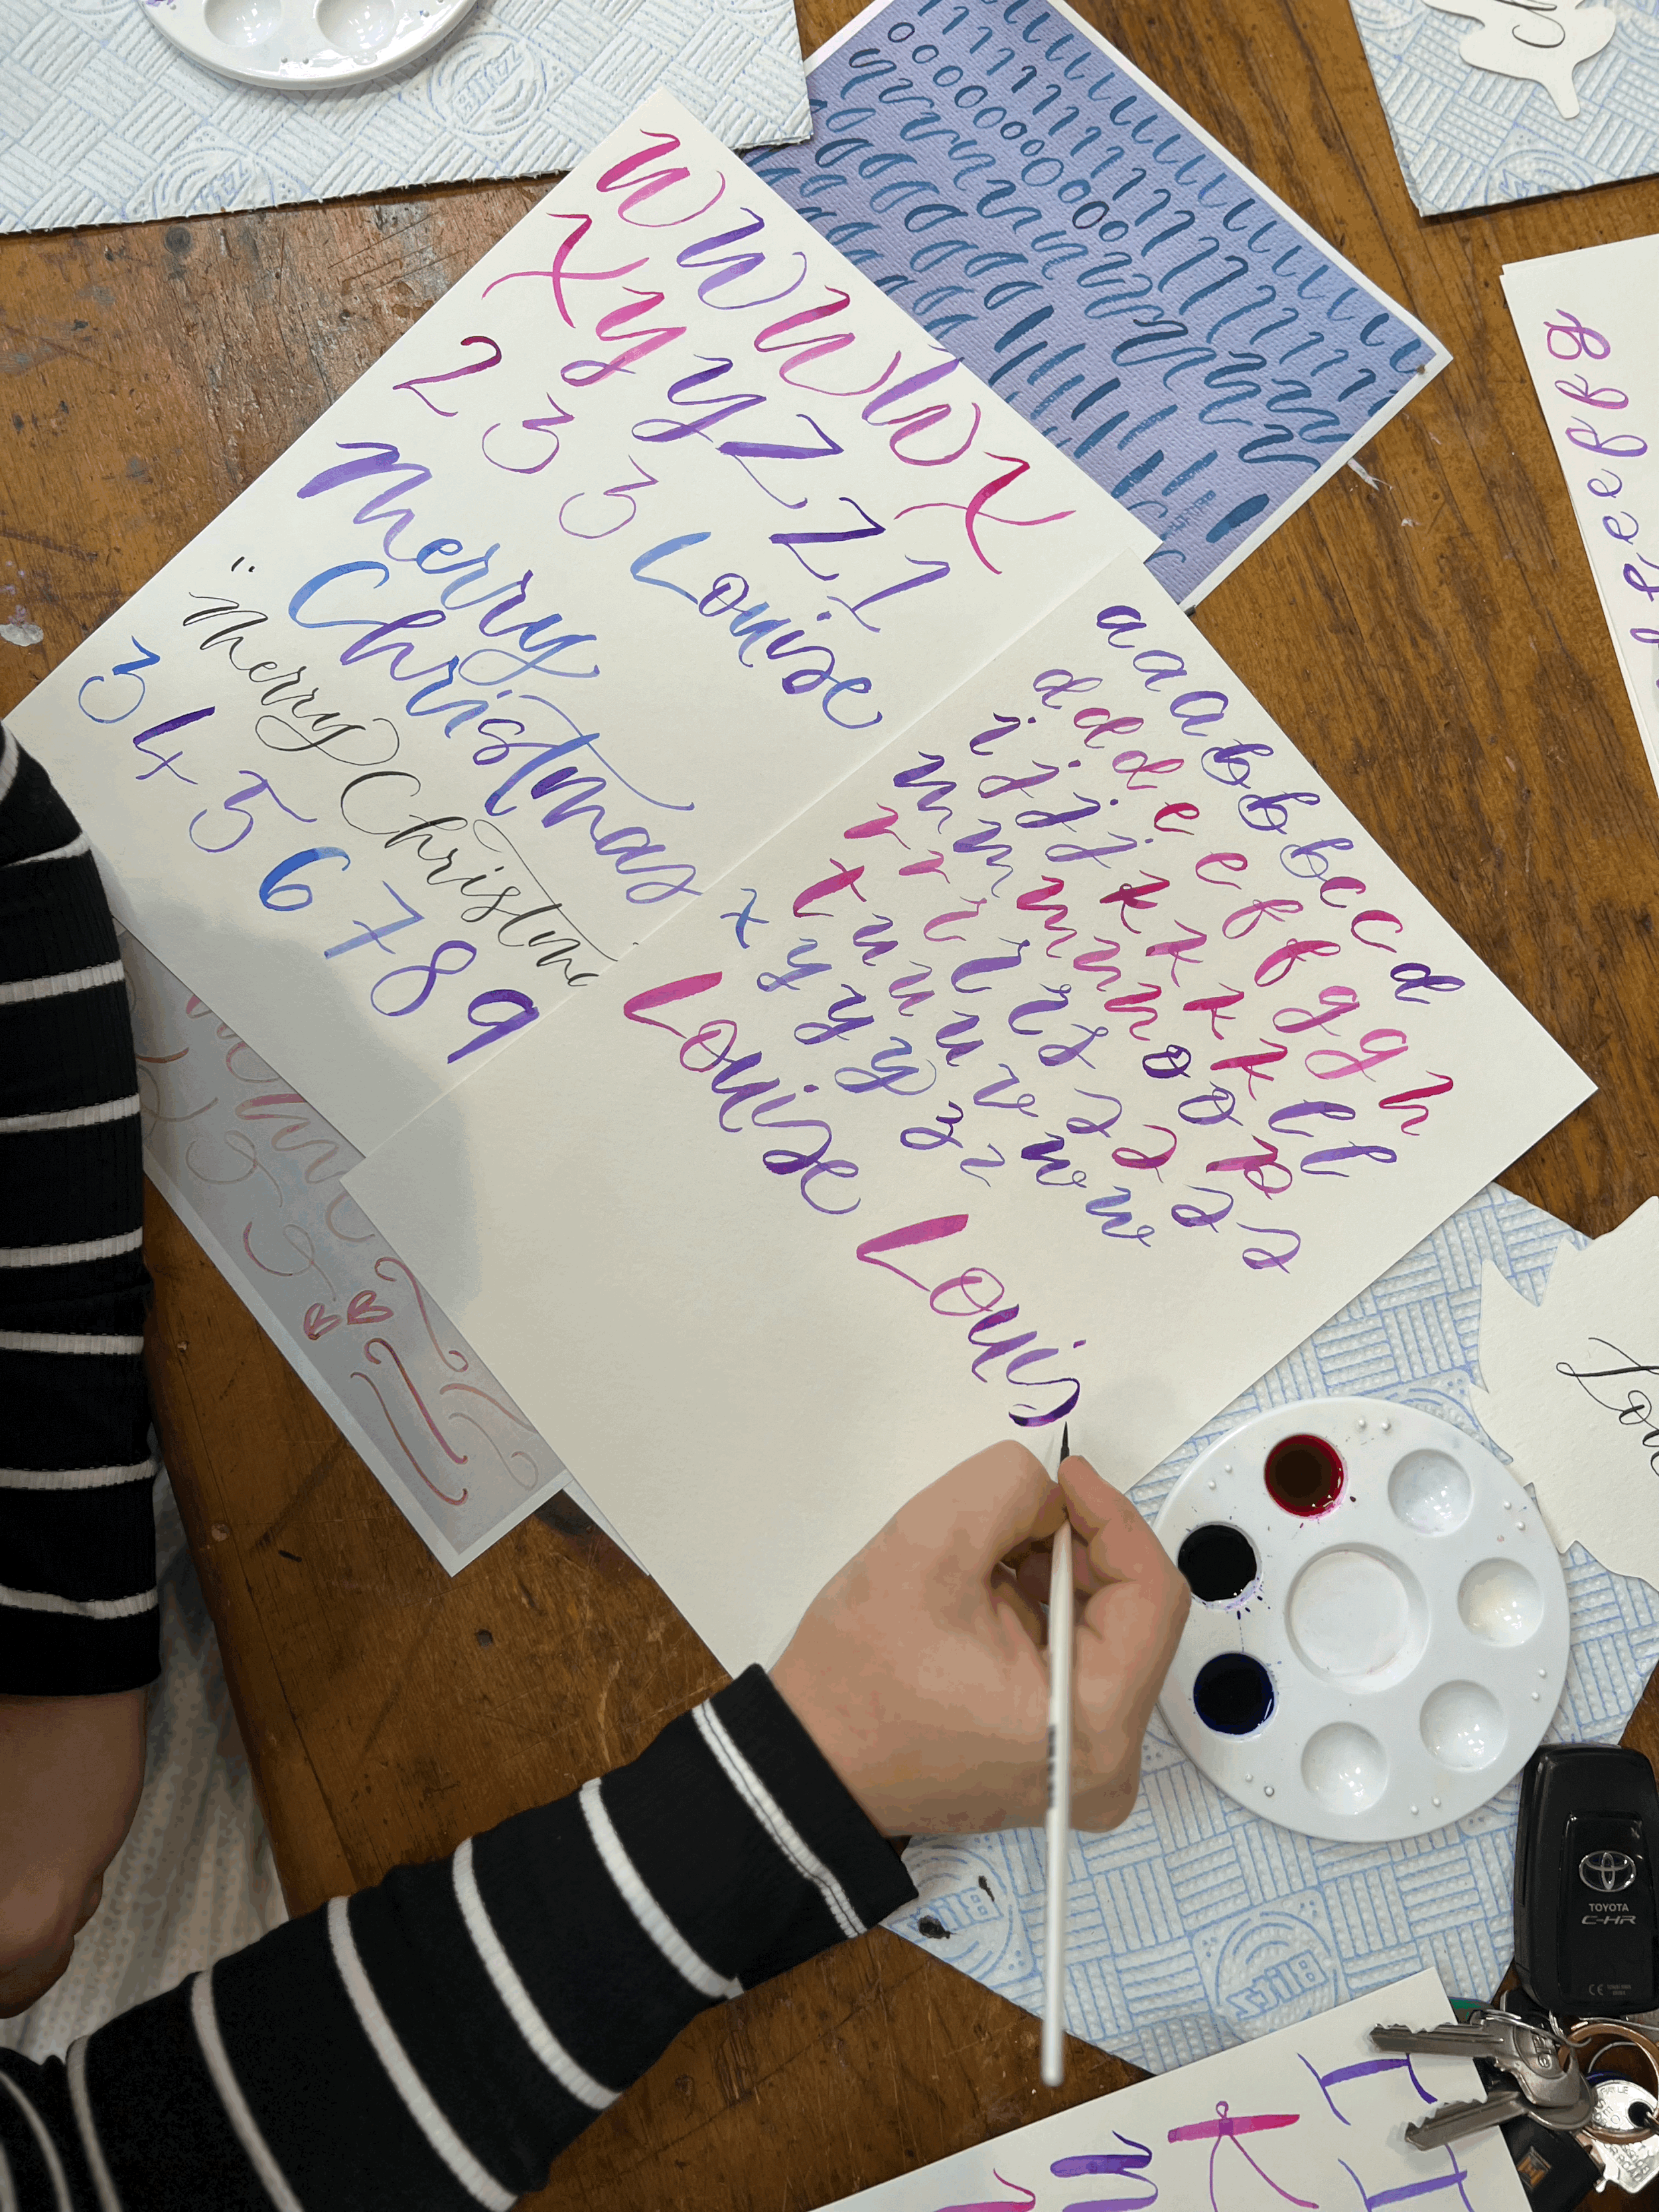 w w w W X
X y y Z Z 1
2 3 3 Louise
Merry
Christmas
Merry Christm
3 4 5 6 7 8 9
a a a b b b c c d
d d d e e f f g g h
i j j k k k k l l
m m m n n o o p
r r r r r s s s s s
t u u u v w w
x y y y z z
Louise
Louis
Lou
TOYOTA
C-HR
CE
Blitz
Blitz